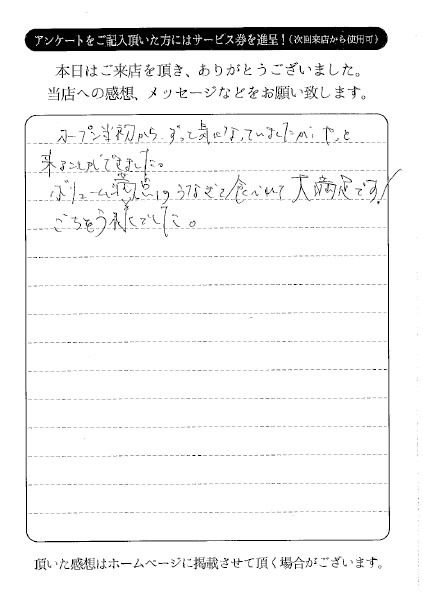 アンケートをご記入頂いた方にはサービス券を進呈！（次回来店から使用可）
本日はご来店を頂き、ありがとうございました。
当店への感想、メッセージなどをお願い致します。
オープン当初から、ずっと気になっていましたが、やっと
来ることができました。
ボリューム満点のうなぎを食べれて大満足です！
ごちそう様でした。
頂いた感想はホームページに掲載させて頂く場合がございます。